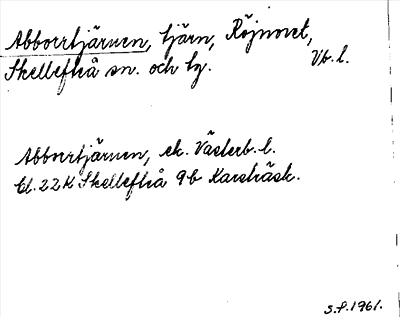 Abborrtjärnen, tjärn, Röjnoret,
Skellefteå sn. och tg. Vb. l.
Abborrtjärnen, ek. Västerb. l.
bl. 22K Skellefteå 9b Karsträsk.
S.P. 1961.